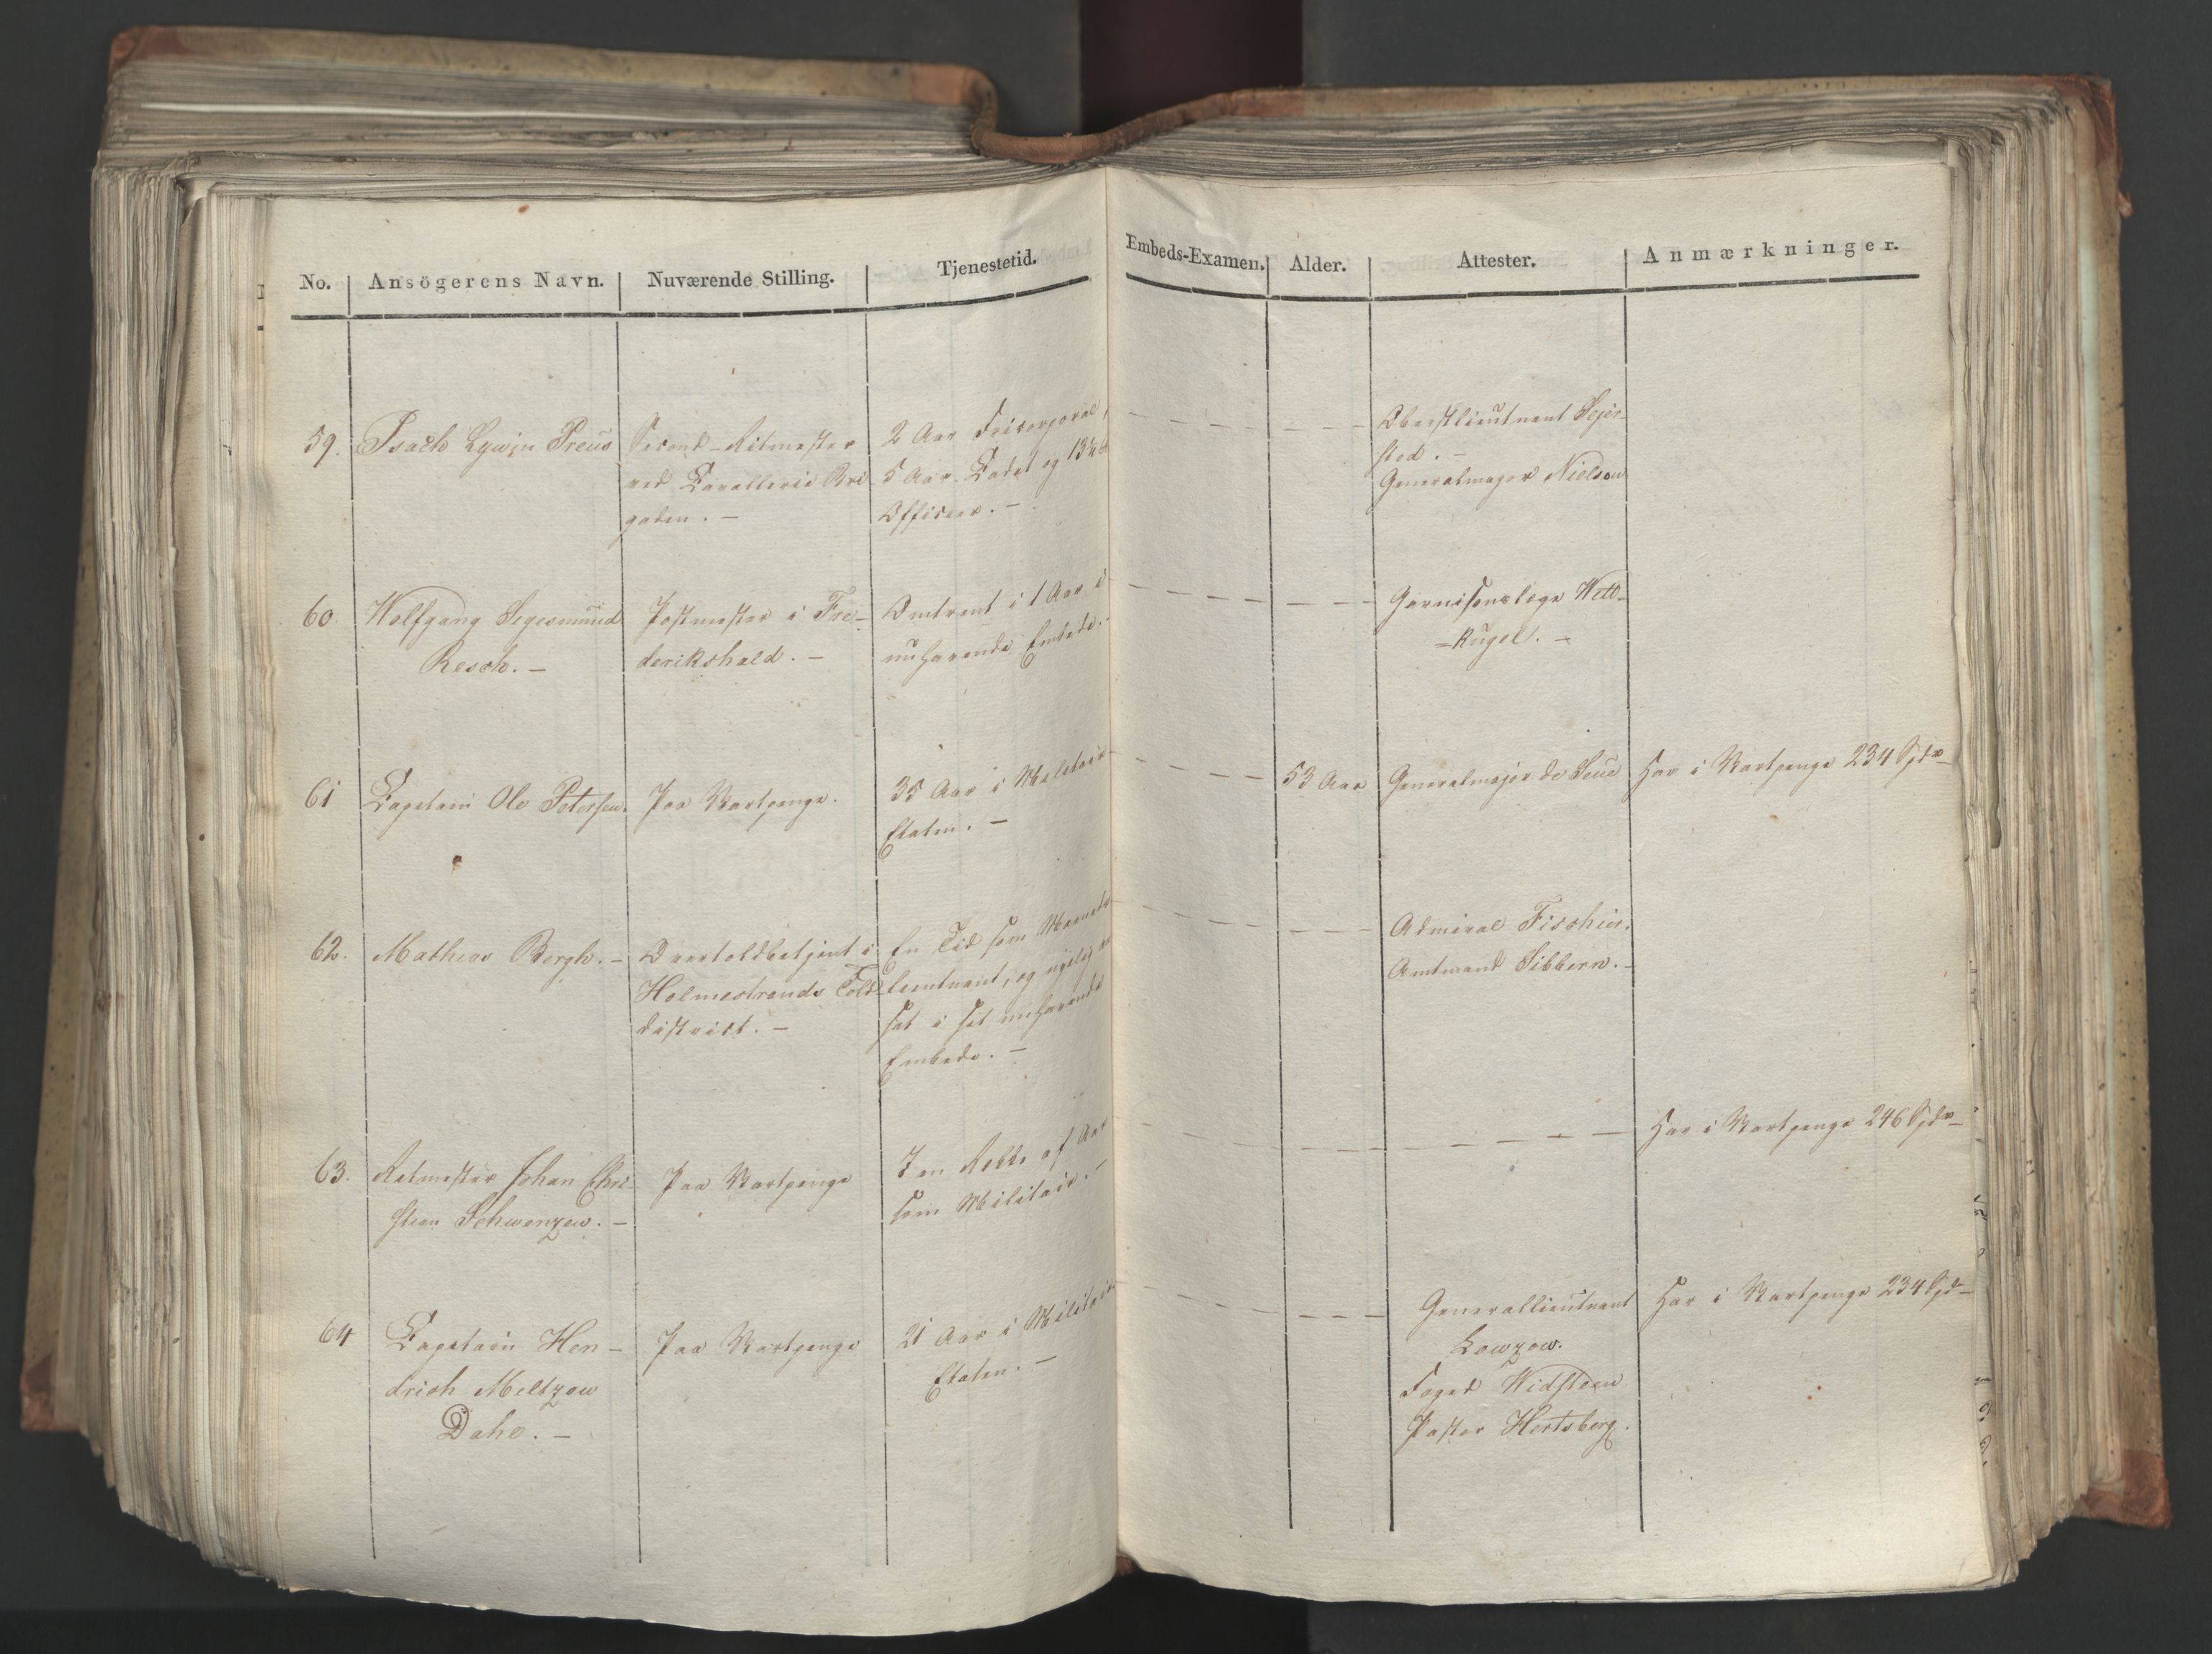 No. Ansögerens Navn. Nuværende Stilling. Tjenestetid. Embeds-Examen. Alder. Attester. Anmærkninger.
59. Isach Lywin Preus
Second-Ritmester
ved Cavallerie Bri
gaden. –
2 Aar Fricorporal,
5 Aar Cadet og 13
Officeer. –
Oberstlieutnant Sejer-
sted. –
Generalmajor Nielsen
60. Wolfgang Sigesmund
Resch. –
Postmester i Fre-
derikshald. –
Omtrent i 1 Aar i
nuhavende Embede. –
Garnisonslæge Wett-
=Kugel. –
61 Capitain Ole Petersen.
Paa Vartpenge.
35 Aar i Militair
Etaten. –
53 Aar
Generalmajor de Seue
Har i Vartpenge 234 Spdr
62. Mathias Bergh. –
Overtoldbetjent i
Holmestrands Told
district. –
En Tid som
Lieutnant, og
sat i sit nuhavende
Embede. –
Admiral Fischer.
Amtmand Sibbern. –
63. Ritmester Johan Chri-
stian Schwenzen. –
Paa Vartpenge
I en Række af Aar
som Militair. –
Har i Vartpenge 246 Spdr
64 Capitain Hen-
drich Meltzow
Dahe. –
Paa Vartpenge
21 Aar i Militair
Etaten. –
Generallieutnant
Lowzow.
Foged Widsteen
Pastor Hertsberg.
Har i Vartpenge 234 Spdr